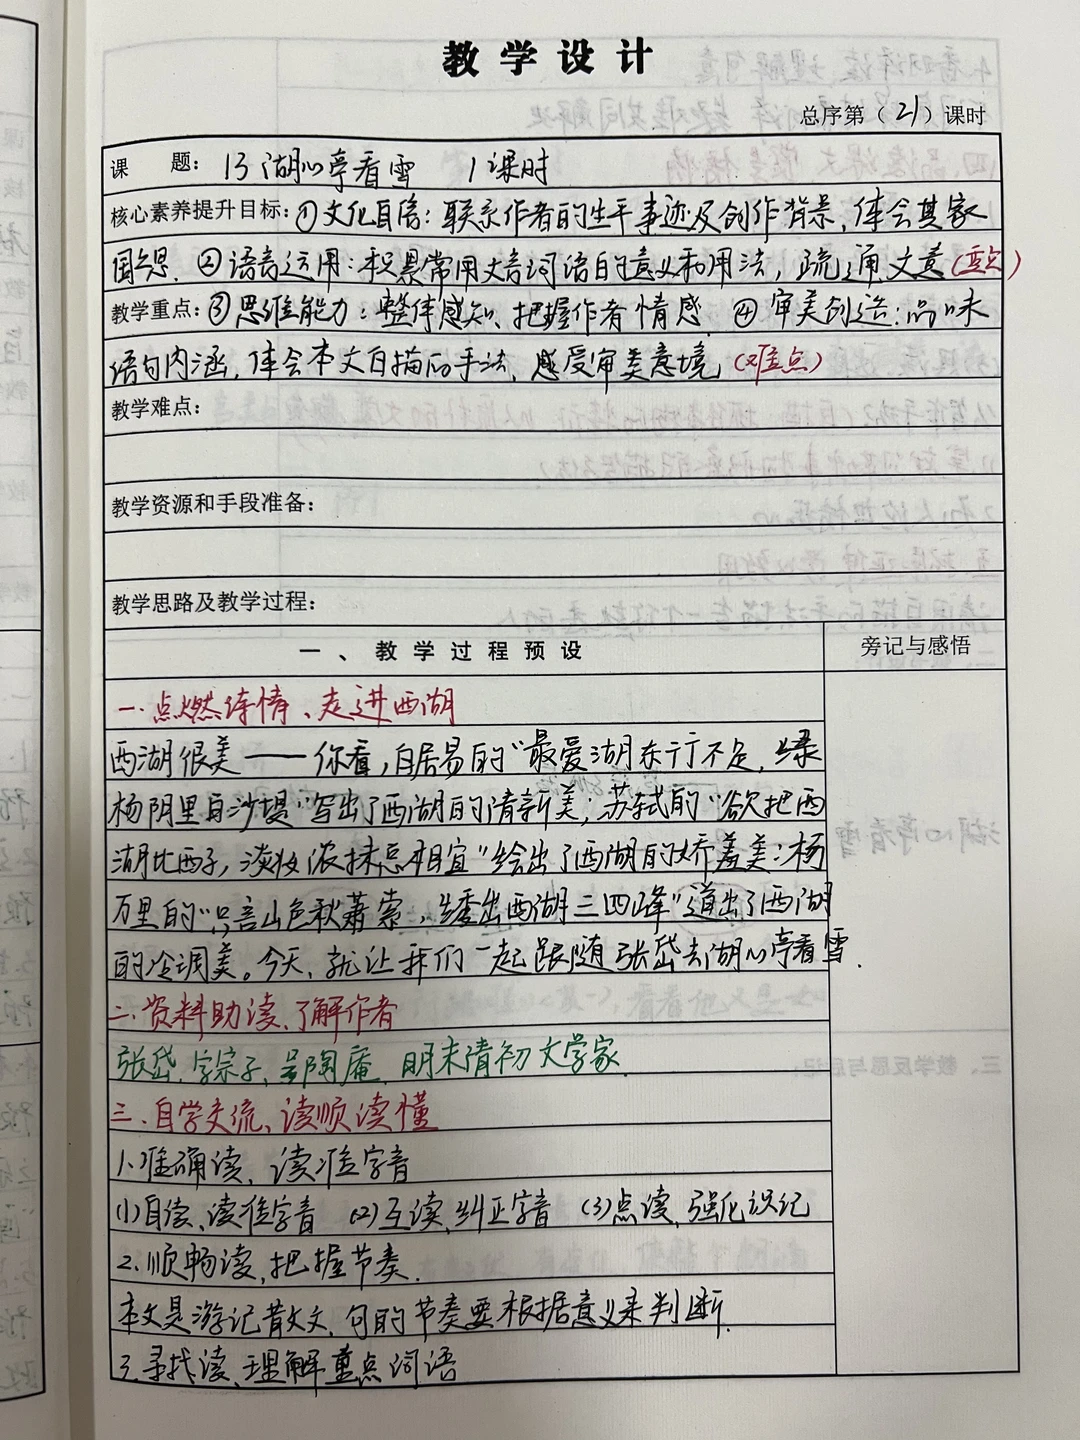 教学设计
总序第（21）课时
课 题： 13 湖心亭看雪 1课时
核心素养提升目标：①文化自信：联系作者的生平事迹及创作背景，体会其家
国之思. ②语言运用：积累常用文言词语的意义和用法，疏通文意(重点)
教学重点：③思维能力：整体感知、把握作者情感. ④审美创造：品味
语句内涵，体会本文白描的手法，感受审美意境(难点)
教学难点：
教学资源和手段准备：
教学思路及教学过程：
一、教学过程预设 旁记与感悟
一.点燃诗情、走进西湖
西湖很美——你看，白居易的“最爱湖东行不足，绿
杨阴里白沙堤”写出了西湖的清新美；苏轼的“欲把西
湖比西子，淡妆浓抹总相宜”绘出了西湖的娇羞美；杨
万里的“只言山色秋萧索，绣出西湖三四峰”道出了西湖
的冷调美。今天，就让我们一起跟随张岱去湖心亭看雪.
二.资料助读、了解作者
张岱，字宗子，号陶庵，明末清初文学家.
三.自学交流，读顺读懂
1.准确读，读准字音
(1)自读、读准字音 (2)互读，纠正字音 (3)点读，强化识记
2.顺畅读，把握节奏.
本文是游记散文，句的节奏要根据意义来判断.
3.寻找读、理解重点词语